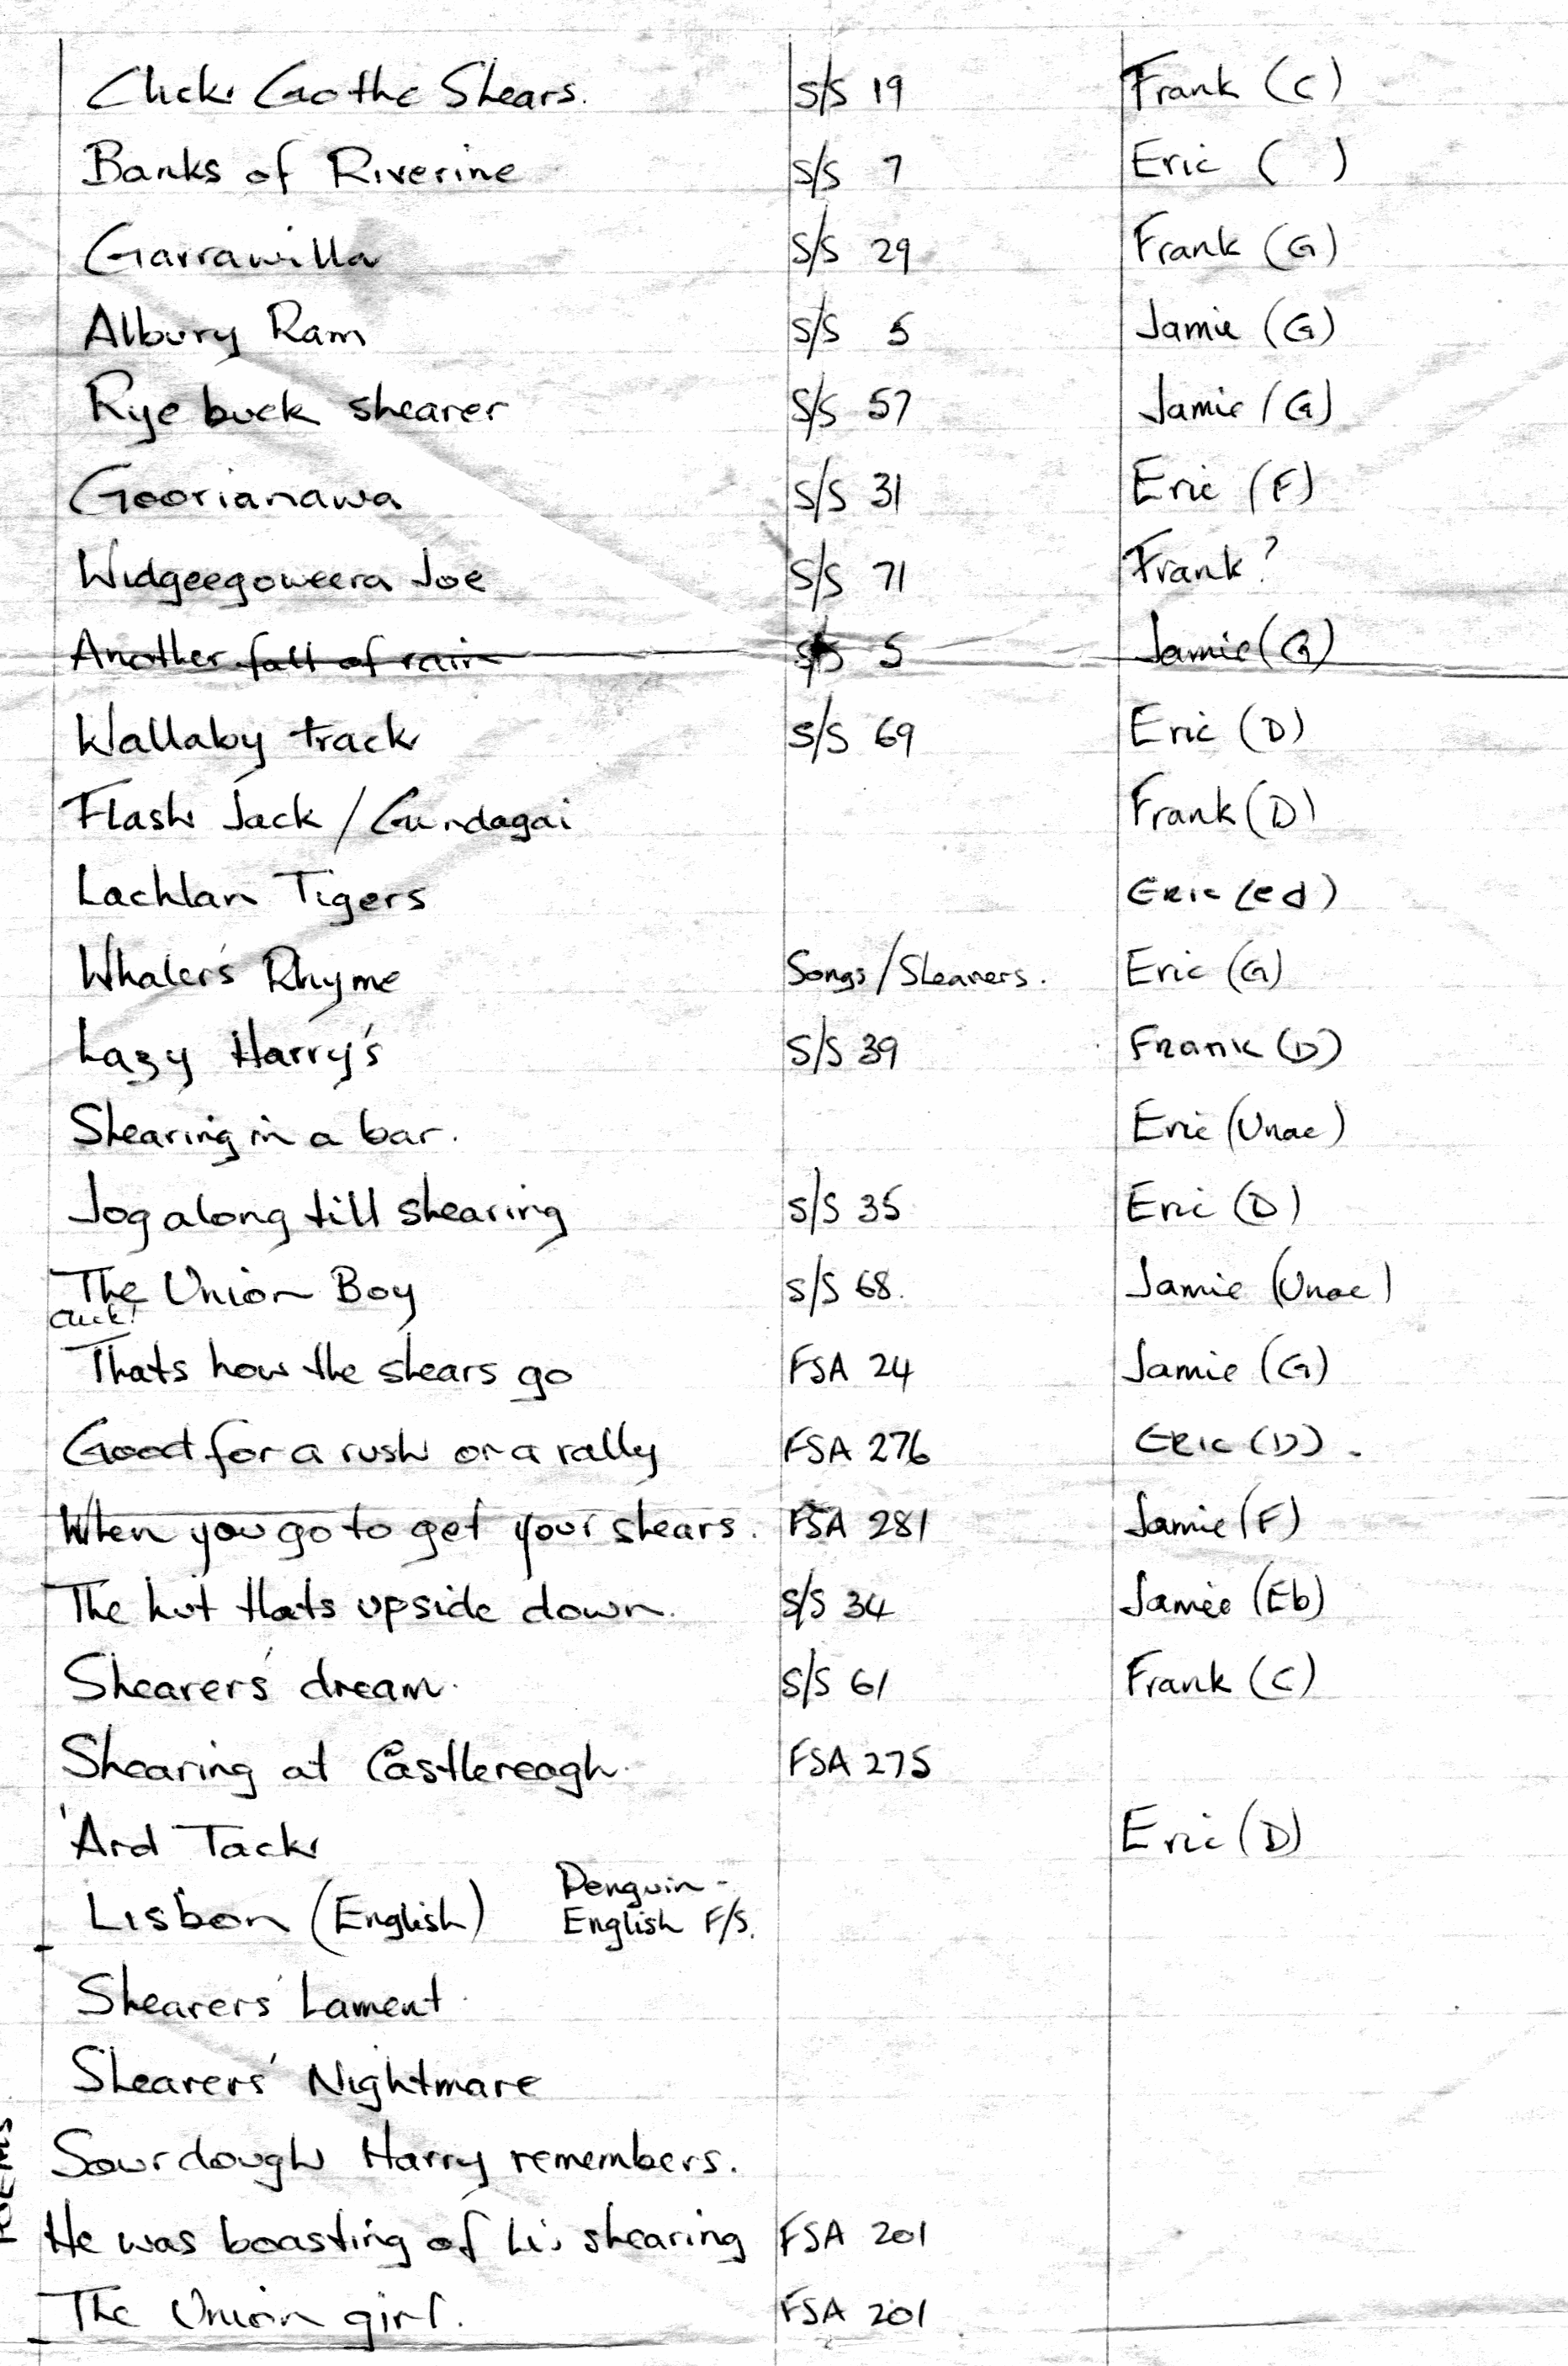 Click Go the Shears. S/S 19 Frank (C)
Banks of Riverine S/S 7 Eric ( )
Garrawilla S/S 29 Frank (G)
Albury Ram S/S 5 Jamie (G)
Rye buck shearer S/S 57 Jamie (G)
Goorianawa S/S 31 Eric (F)
Widgeegoweera Joe S/S 71 Frank?
Another fall of rain S/S 5 Jamie (G)
Wallaby track S/S 69 Eric (D)
Flash Jack / Gundagai Frank (D)
Lachlan Tigers Eric (ed)
Whaler's Rhyme Songs/Shearers. Eric (G)
Lazy Harry's S/S 39 Frank (D)
Shearing in a bar. Eric (Unac)
Jog along till shearing S/S 35 Eric (D)
The Union Boy S/S 68. Jamie (Unac)
Click!
Thats how the shears go FSA 24 Jamie (G)
Good for a rush or a rally FSA 276 Eric (D).
When you go to get your shears. FSA 281 Jamie (F)
The hut thats upside down. S/S 34 Jamie (Eb)
Shearers' dream. S/S 61 Frank (C)
Shearing at Castlereagh. FSA 275
'Ard Tack Eric (D)
Lisbon (English) Penguin -
English F/S.
Shearers' Lament
Shearers' Nightmare
Sourdough Harry remembers.
POEMS
He was boasting of his shearing FSA 201
The Union girl. FSA 201